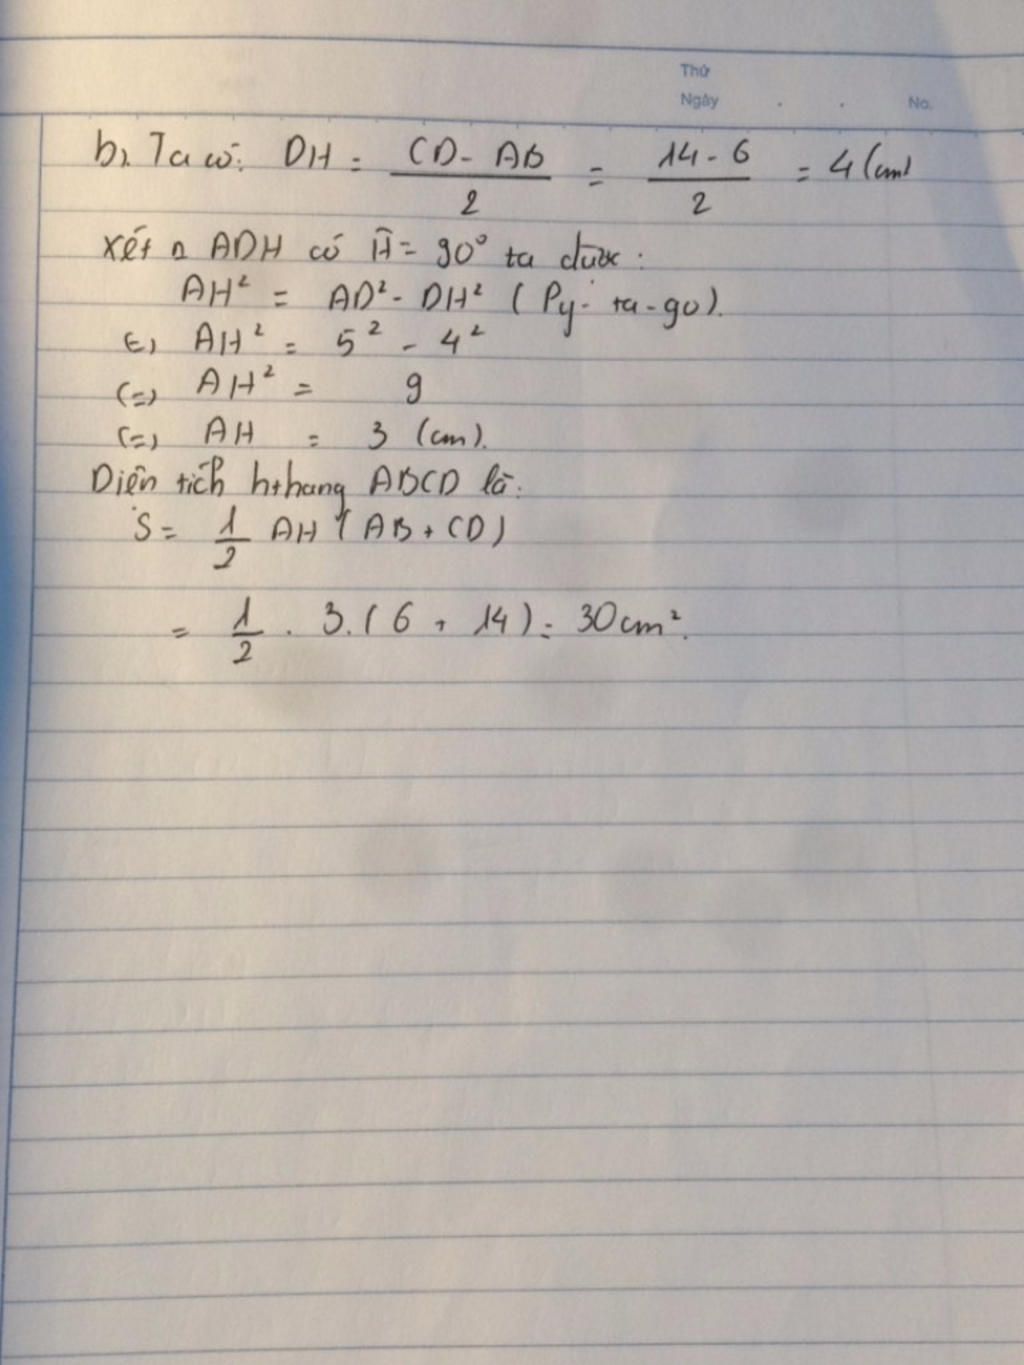 Thứ
Ngày . . No.
b). Ta có: DH = \frac{CD - AB}{2} = \frac{14 - 6}{2} = 4 (cm)
Xét △ ADH có Ĥ = 90° ta được:
AH² = AD² - DH² (Py-ta-go).
(=) AH² = 5² - 4²
(=) AH² = 9
(=) AH = 3 (cm).
Diện tích hthang ABCD là:
S = \frac{1}{2} AH (AB + CD)
= \frac{1}{2} . 3. (6 + 14) = 30cm².